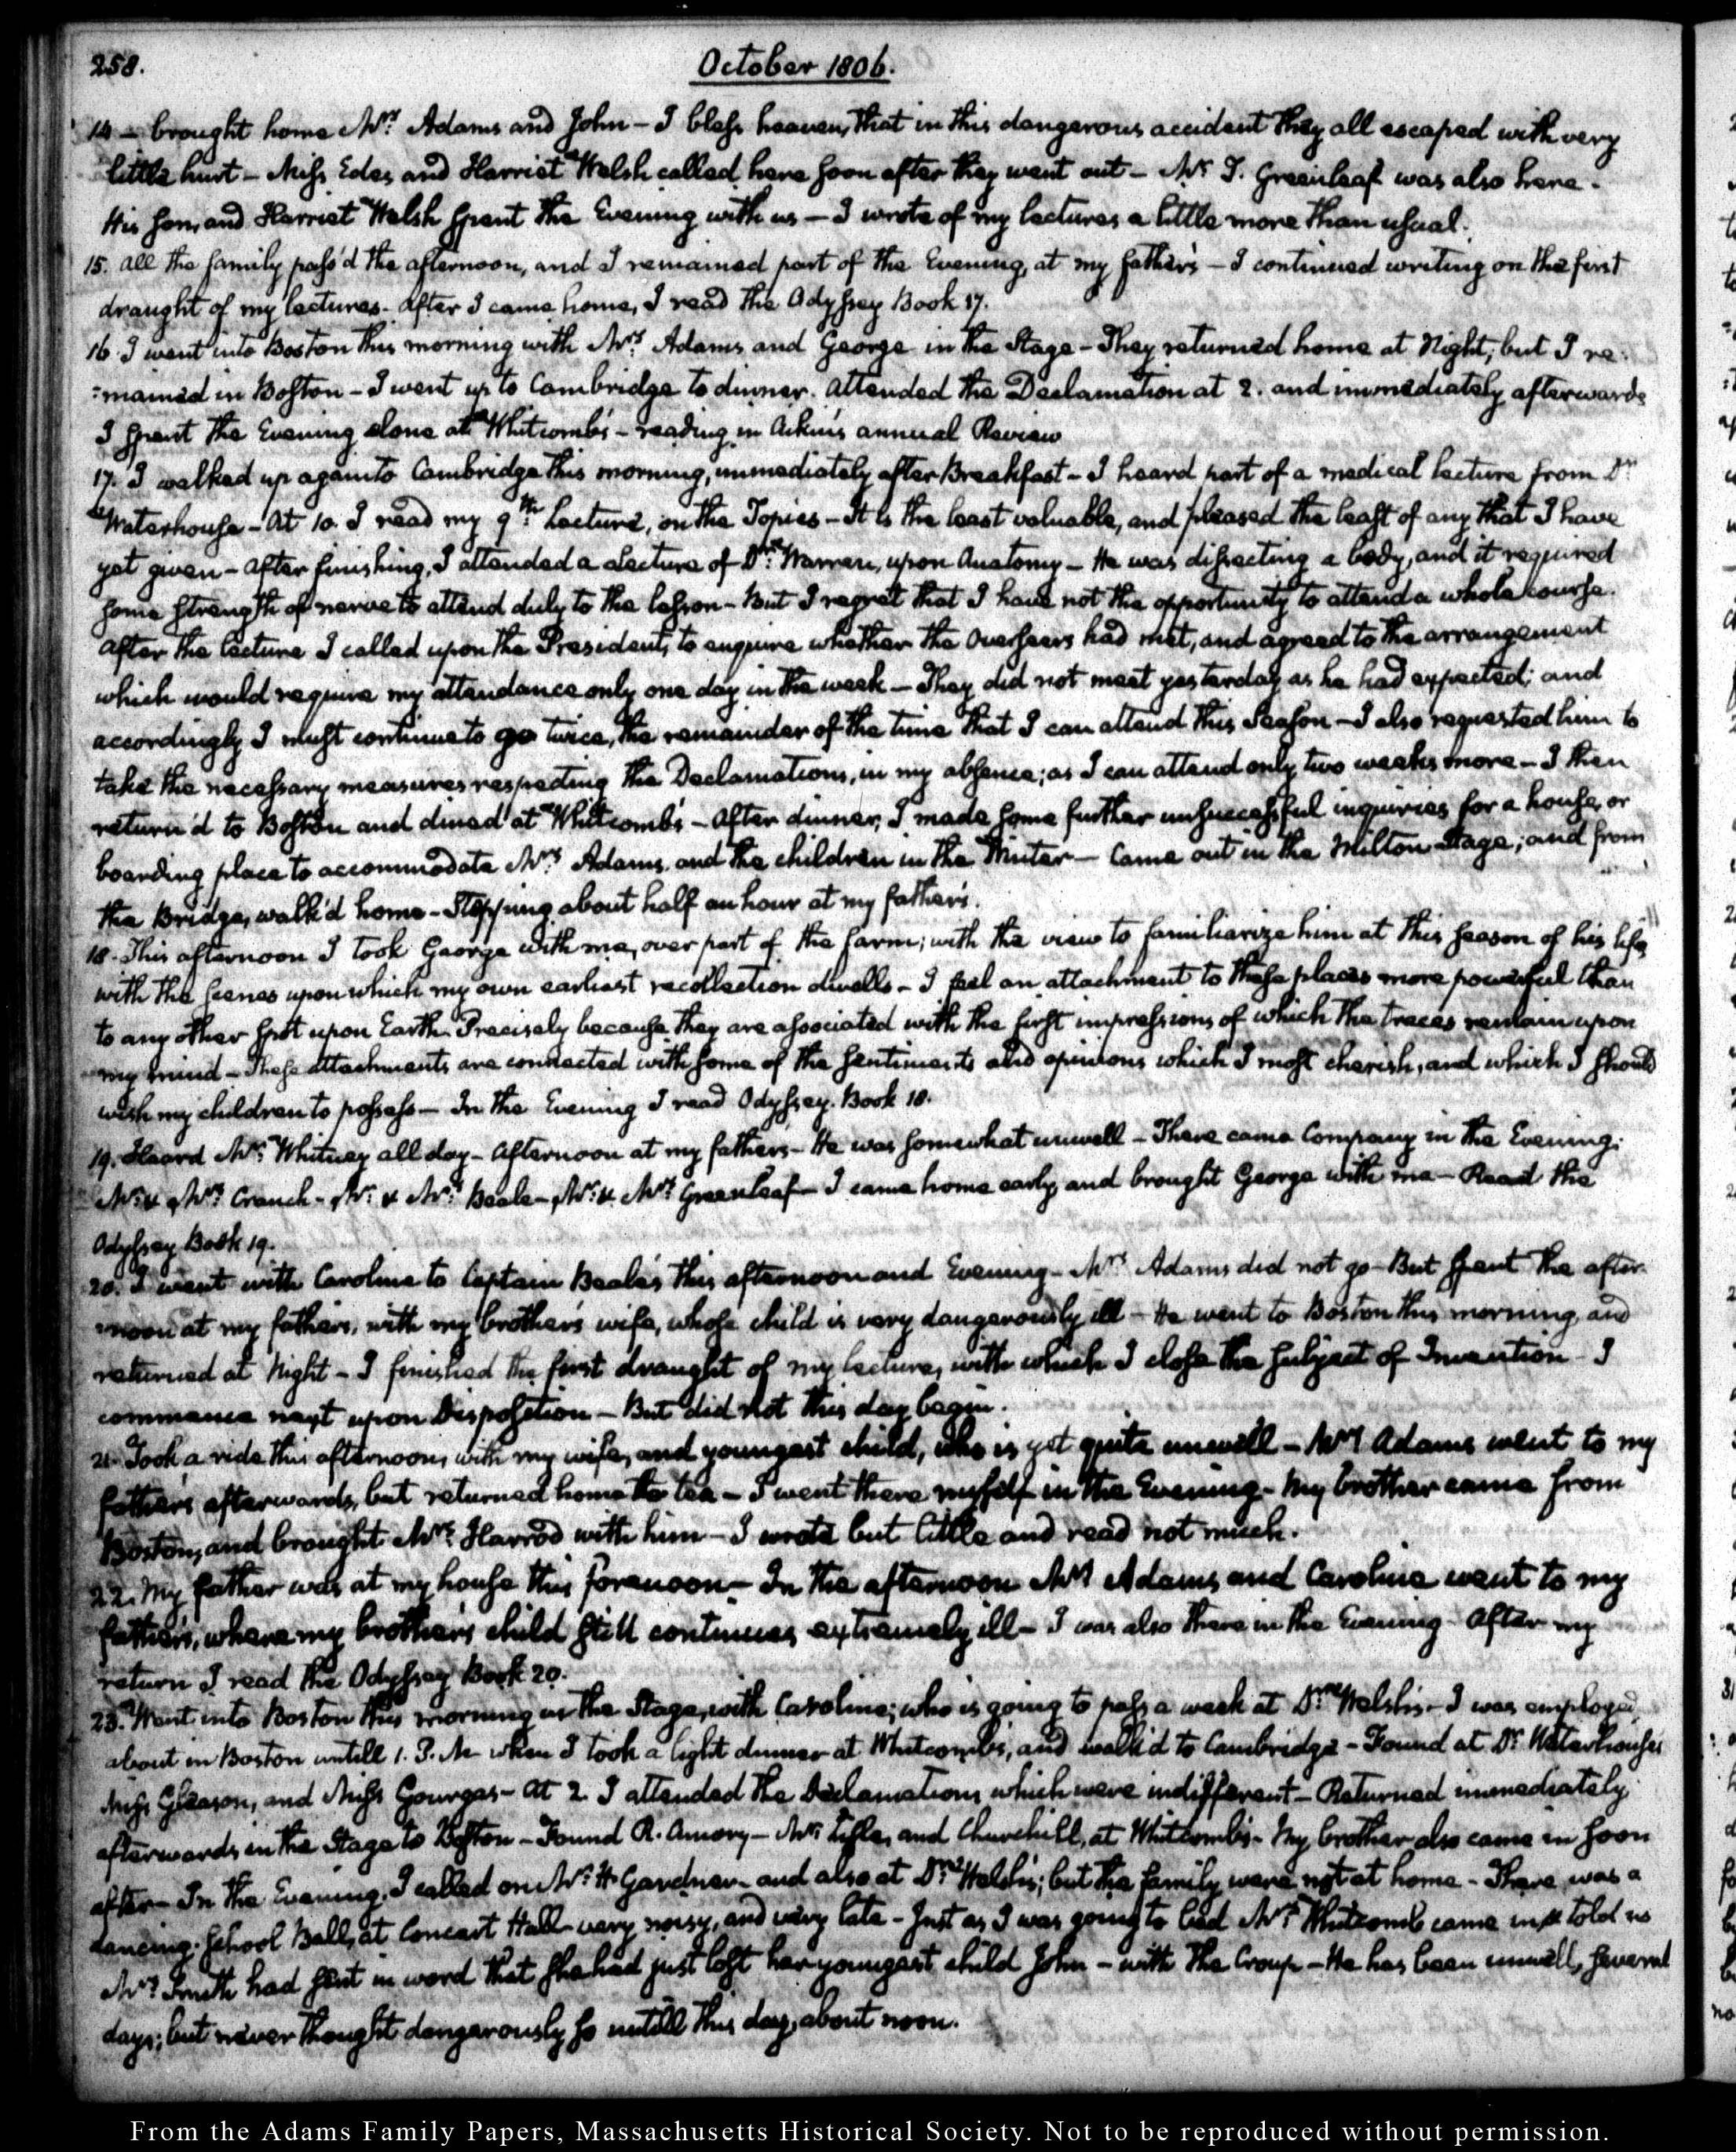 258.
October 1806.
14 - brought home Mrs. Adams and John - I bless heaven, that in this dangerous accident they all escaped with very
little hurt - Miss Edes and Harriet Welsh called here soon after they went out - Mr. T. Greenleaf was also here.
His son, and Harriet Welsh spent the Evening with us - I wrote of my lectures a little more than usual.
15. All the family pass'd the afternoon, and I remained part of the Evening, at my father's - I continued writing on the first
draught of my lectures. After I came home, I read the Odyssey Book 17.
16. I went into Boston this morning with Mrs. Adams and George in the Stage - They returned home at Night; but I re-
:mained in Boston - I went up to Cambridge to dinner. Attended the Declamation at 2. and immediately afterwards
I spent the Evening alone at Whitcomb's - reading in Aikin's annual Review
17. I walked up again to Cambridge this morning, immediately after Breakfast - I heard part of a medical lecture from Dr.
Waterhouse - At 10. I read my 9th. Lecture, on the Topics - It is the least valuable, and pleased the least of any that I have
yet given - After finishing, I attended a lecture of Dr. Warren, upon Anatomy - He was dissecting a body, and it required
some strength of nerve to attend duly to the lesson - But I regret that I have not the opportunity to attend a whole course.
After the lecture I called upon the President, to enquire whether the Overseers had met, and agreed to the arrangement
which would require my attendance only one day in the week - They did not meet yesterday as he had expected; and
accordingly I must continue to go twice, the remainder of the time that I can attend this Season - I also requested him to
take the necessary measures respecting the Declamations, in my absence; as I can attend only two weeks more - I then
return'd to Boston and dined at Whitcomb's - After dinner, I made some further unsuccessful inquiries for a house, or
boarding place to accommodate Mrs. Adams and the children in the Winter - Came out in the Milton Stage; and from
the Bridge, walk'd home - Stopping about half an hour at my father's.
18. This afternoon I took George with me, over part of the farm; with the view to familiarize him at this season of his life
with the scenes upon which my own earliest recollection dwells - I feel an attachment to these places more powerful than
to any other spot upon Earth. Precisely because they are associated with the first impressions of which the traces remain upon
my mind - These attachments are connected with some of the sentiments and opinions which I most cherish, and which I should
wish my children to possess - In the Evening I read Odyssey. Book 18.
19. Heard Mr. Whitney all day - Afternoon at my father's - He was somewhat unwell - There came Company in the Evening.
Mr. & Mrs. Cranch - Mr. & Mrs. Beale - Mr. & Mrs. Greenleaf - I came home early, and brought George with me - Read the
Odyssey Book 19.
20. I went with Caroline to Captain Beale's this afternoon and Evening - Mrs. Adams did not go - But spent the after-
:noon at my father's, with my brother's wife, whose child is very dangerously ill - He went to Boston this morning, and
returned at Night - I finished the first draught of my lecture, with which I close the subject of Invention - I
commence next upon Disposition - But did not this day begin.
21. Took a ride this afternoon, with my wife, and youngest child, who is yet quite unwell - Mrs. Adams went to my
father's afterwards, but returned home to tea - I went there myself in the Evening - My brother came from
Boston, and brought Mrs. Harrod with him - I wrote but little and read not much.
22. My father was at my house this forenoon - In the afternoon Mrs. Adams and Caroline went to my
father's, where my brother's child still continues extremely ill - I was also there in the Evening - After my
return I read the Odyssey Book 20.
23. Went into Boston this morning in the Stage, with Caroline; who is going to pass a week at Dr. Welsh's - I was employed
about in Boston untill 1. P.M. when I took a light dinner at Whitcomb's, and walk'd to Cambridge - Found at Dr. Waterhouse's
Miss Gleason, and Miss Gourgas - At 2. I attended the Declamations, which were indifferent - Returned immediately
afterwards, in the Stage to Boston - Found R. Amory - Mr. and Churchill, at Whitcomb's - My brother also came in soon
after - In the Evening, I called on Mr. Gardner - and also at Dr. Welsh's; but the family were not at home - There was a
dancing-School Ball, at Concert Hall - very noisy, and very late - Just as I was going to bed Mrs. Whitcomb came in, & told us
Mrs. Smith had sent in word that she had just lost her youngest child John - with the Croup - He has been unwell, several
days; but never thought dangerously so untill this day, about noon.
From the Adams Family Papers, Massachusetts Historical Society. Not to be reproduced without permission.